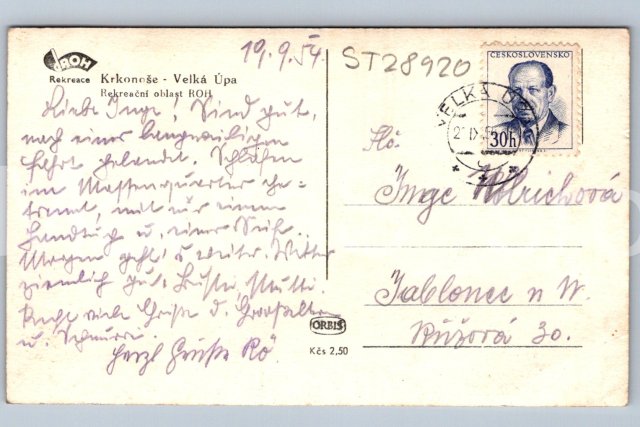 ROH
Rekreace
Krkonoše - Velká Úpa
Rekreační oblast ROH
19.9.54
ST28920
ČESKOSLOVENSKO
30h
VELKÁ ÚPA
Liebe Inge! Sind gut,
nach einer langweiligen
Fahrt gelandet. Schlafen
im Massenquartier ge-
trennt, mit nur einem
Handtuch u. einer
Morgen geht's weiter. Wetter
ziemlich gut. Mutti.
Recht viele Grüße d. Großeltern
u.
Herzl Grüße
Slč.
Inge
Jablonec n N.
Růžová 30.
ORBIS
Kčs 2,50